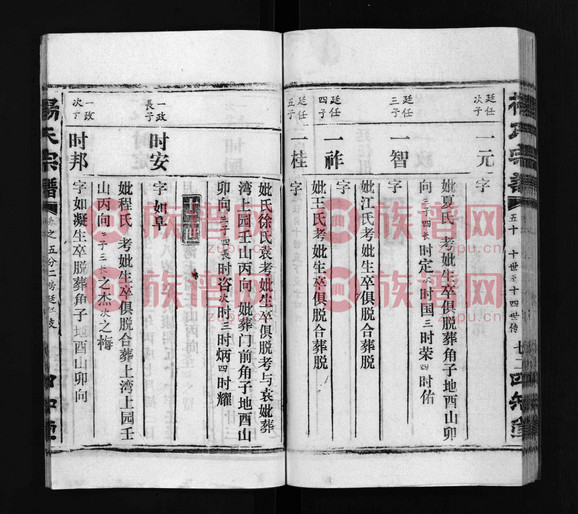 楊氏宗譜
五十
十世至十四世傳
七二
四知堂
廷任次子
一元
字
妣夏氏 考妣生卒俱脱葬角子地酉山卯
向 子四長时定次时国三时荣四时佑
廷任三子
一智
字
妣江氏考妣生卒俱脱合葬脱
廷任四子
一祚
字
妣王氏考妣生卒俱脱合葬脱
廷任五子
一桂
字
妣氏徐氏袁考妣生卒俱脱考与袁妣葬
湾上园壬山丙向徐妣葬门前角子地酉山
卯向 子四長时咨次时 三时炳四时耀
十三世
一政長子
时安
字如阜
妣程氏 考妣生卒俱脱合葬上湾上园壬
山丙向 子二長之杰次之梅
一政次子
时邦
字如凝生卒脱葬角子地酉山卯向
楊氏宗譜
卷之五分二房廷任支
四知堂
族谱网
族谱网